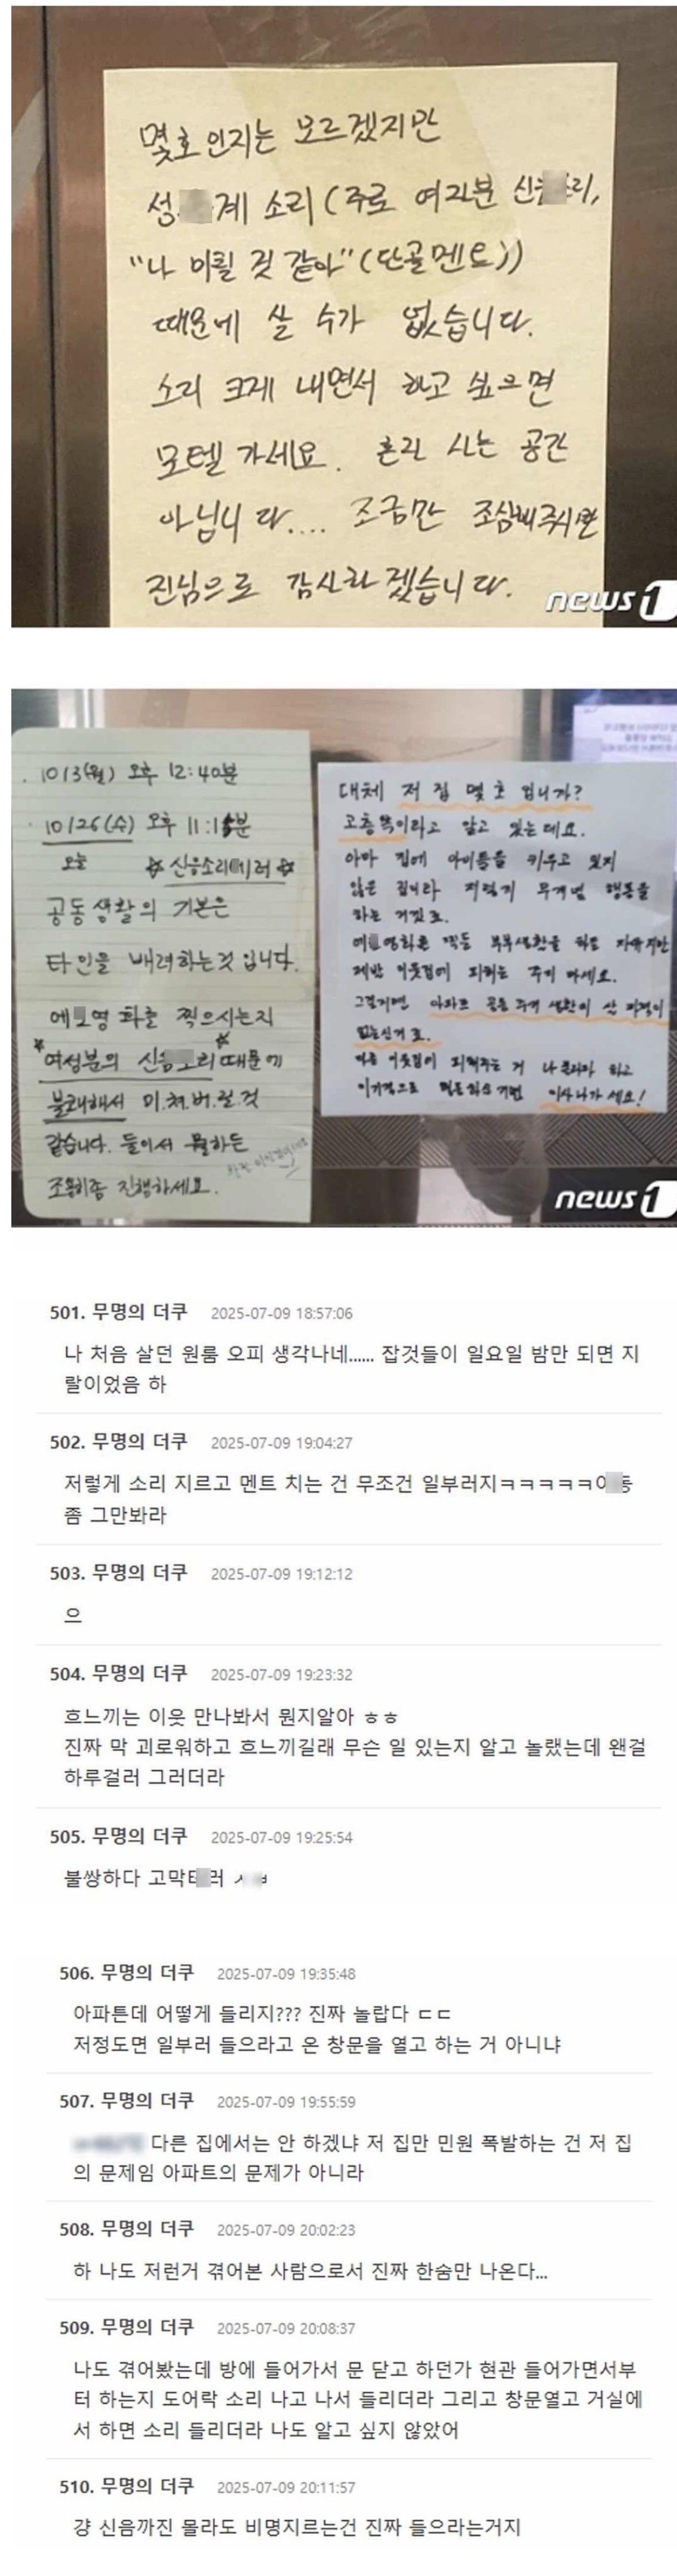 몇호인지는 모르겠지만
성 계 소리 (주로 여자분
"나 미칠 것 같아" (단골멘트))
때문에 살 수가 없습니다.
소리 크게 내면서 하고 싶으면
모텔 가세요. 혼자 사는 공간
아닙니다.... 조금만 조심해주시면
진심으로 감사하겠습니다.
news1
10/3(월) 오후 12:40분
10/26(수) 오후 11:15분
오늘 ☆신음소리테러☆
공동생활의 기본은
타인을 배려하는것 입니다.
에 영화를 찍으시는지
*여성분의 때문에
불쾌해서 미.쳐.버.릴.것
같습니다. 둘이서 뭘하든
조용히좀 진행하세요.
대체 저 집 몇 호 입니까?
고층쪽이라고 알고 있는데요.
아마 집에 아이들을 키우고 있지
않은 집이라 저렇게 무개념 행동을
하는 거겠죠.
찍든 부부생활을 하든 자유지만
제발 이웃집에 피해는 주지 마세요.
그럴거면 아파트 공동 주거 생활이 살 자격이
없는신거죠.
다른 이웃집이 피해주는 거 나 몰라라 하고
이기적으로 이사나가세요!
news1
501. 무명의 더쿠 2025-07-09 18:57:06
나 처음 살던 원룸 오피 생각나네...... 잡것들이 일요일 밤만 되면 지
랄이었음 하
502. 무명의 더쿠 2025-07-09 19:04:27
저렇게 소리 지르고 멘트 치는 건 무조건 일부러지ㅋㅋㅋㅋㅋ
좀 그만봐라
503. 무명의 더쿠 2025-07-09 19:12:12
으
504. 무명의 더쿠 2025-07-09 19:23:32
흐느끼는 이웃 만나봐서 뭔지알아 ㅎㅎ
진짜 막 괴로워하고 흐느끼길래 무슨 일 있는지 알고 놀랬는데 왠걸
하루걸러 그러더라
505. 무명의 더쿠 2025-07-09 19:25:54
불쌍하다
506. 무명의 더쿠 2025-07-09 19:35:48
아파튼데 어떻게 들리지??? 진짜 놀랍다 ㄷㄷ
저정도면 일부러 들으라고 온 창문을 열고 하는 거 아니냐
507. 무명의 더쿠 2025-07-09 19:55:59
다른 집에서는 안 하겠냐 저 집만 민원 폭발하는 건 저 집
의 문제임 아파트의 문제가 아니라
508. 무명의 더쿠 2025-07-09 20:02:23
하 나도 저런거 겪어본 사람으로서 진짜 한숨만 나온다...
509. 무명의 더쿠 2025-07-09 20:08:37
나도 겪어봤는데 방에 들어가서 문 닫고 하던가 현관 들어가면서부
터 하는지 도어락 소리 나고 나서 들리더라 그리고 창문열고 거실에
서 하면 소리 들리더라 나도 알고 싶지 않았어
510. 무명의 더쿠 2025-07-09 20:11:57
걍 신음까진 몰라도 비명지르는건 진짜 들으라는거지